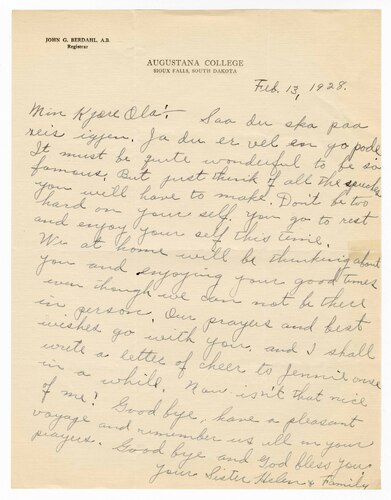 JOHN G. BERDAHL, A.B.
Registrar
AUGUSTANA COLLEGE
SIOUX FALLS, SOUTH DAKOTA
Feb. 13, 1928.
Min Kjære Ola! Saa du ska paa
reis igjen. Ja du er vel en go pode
It must be quite wonderful to be so
famous. But just think of all the speeches
you will have to make. Don't be too
hard on your self. You go to rest
and enjoy your self this time.
We at home will be thinking about
you and enjoying your good times
even though we can not be there
in person. Our prayers and best
wishes go with you, and I shall
write a letter of cheer to Jennie once
in a while. Now isn't that nice
of me! Good bye, have a pleasant
voyage and remember us all in your
prayers. Good bye and God bless you
Your Sister Helen & Family